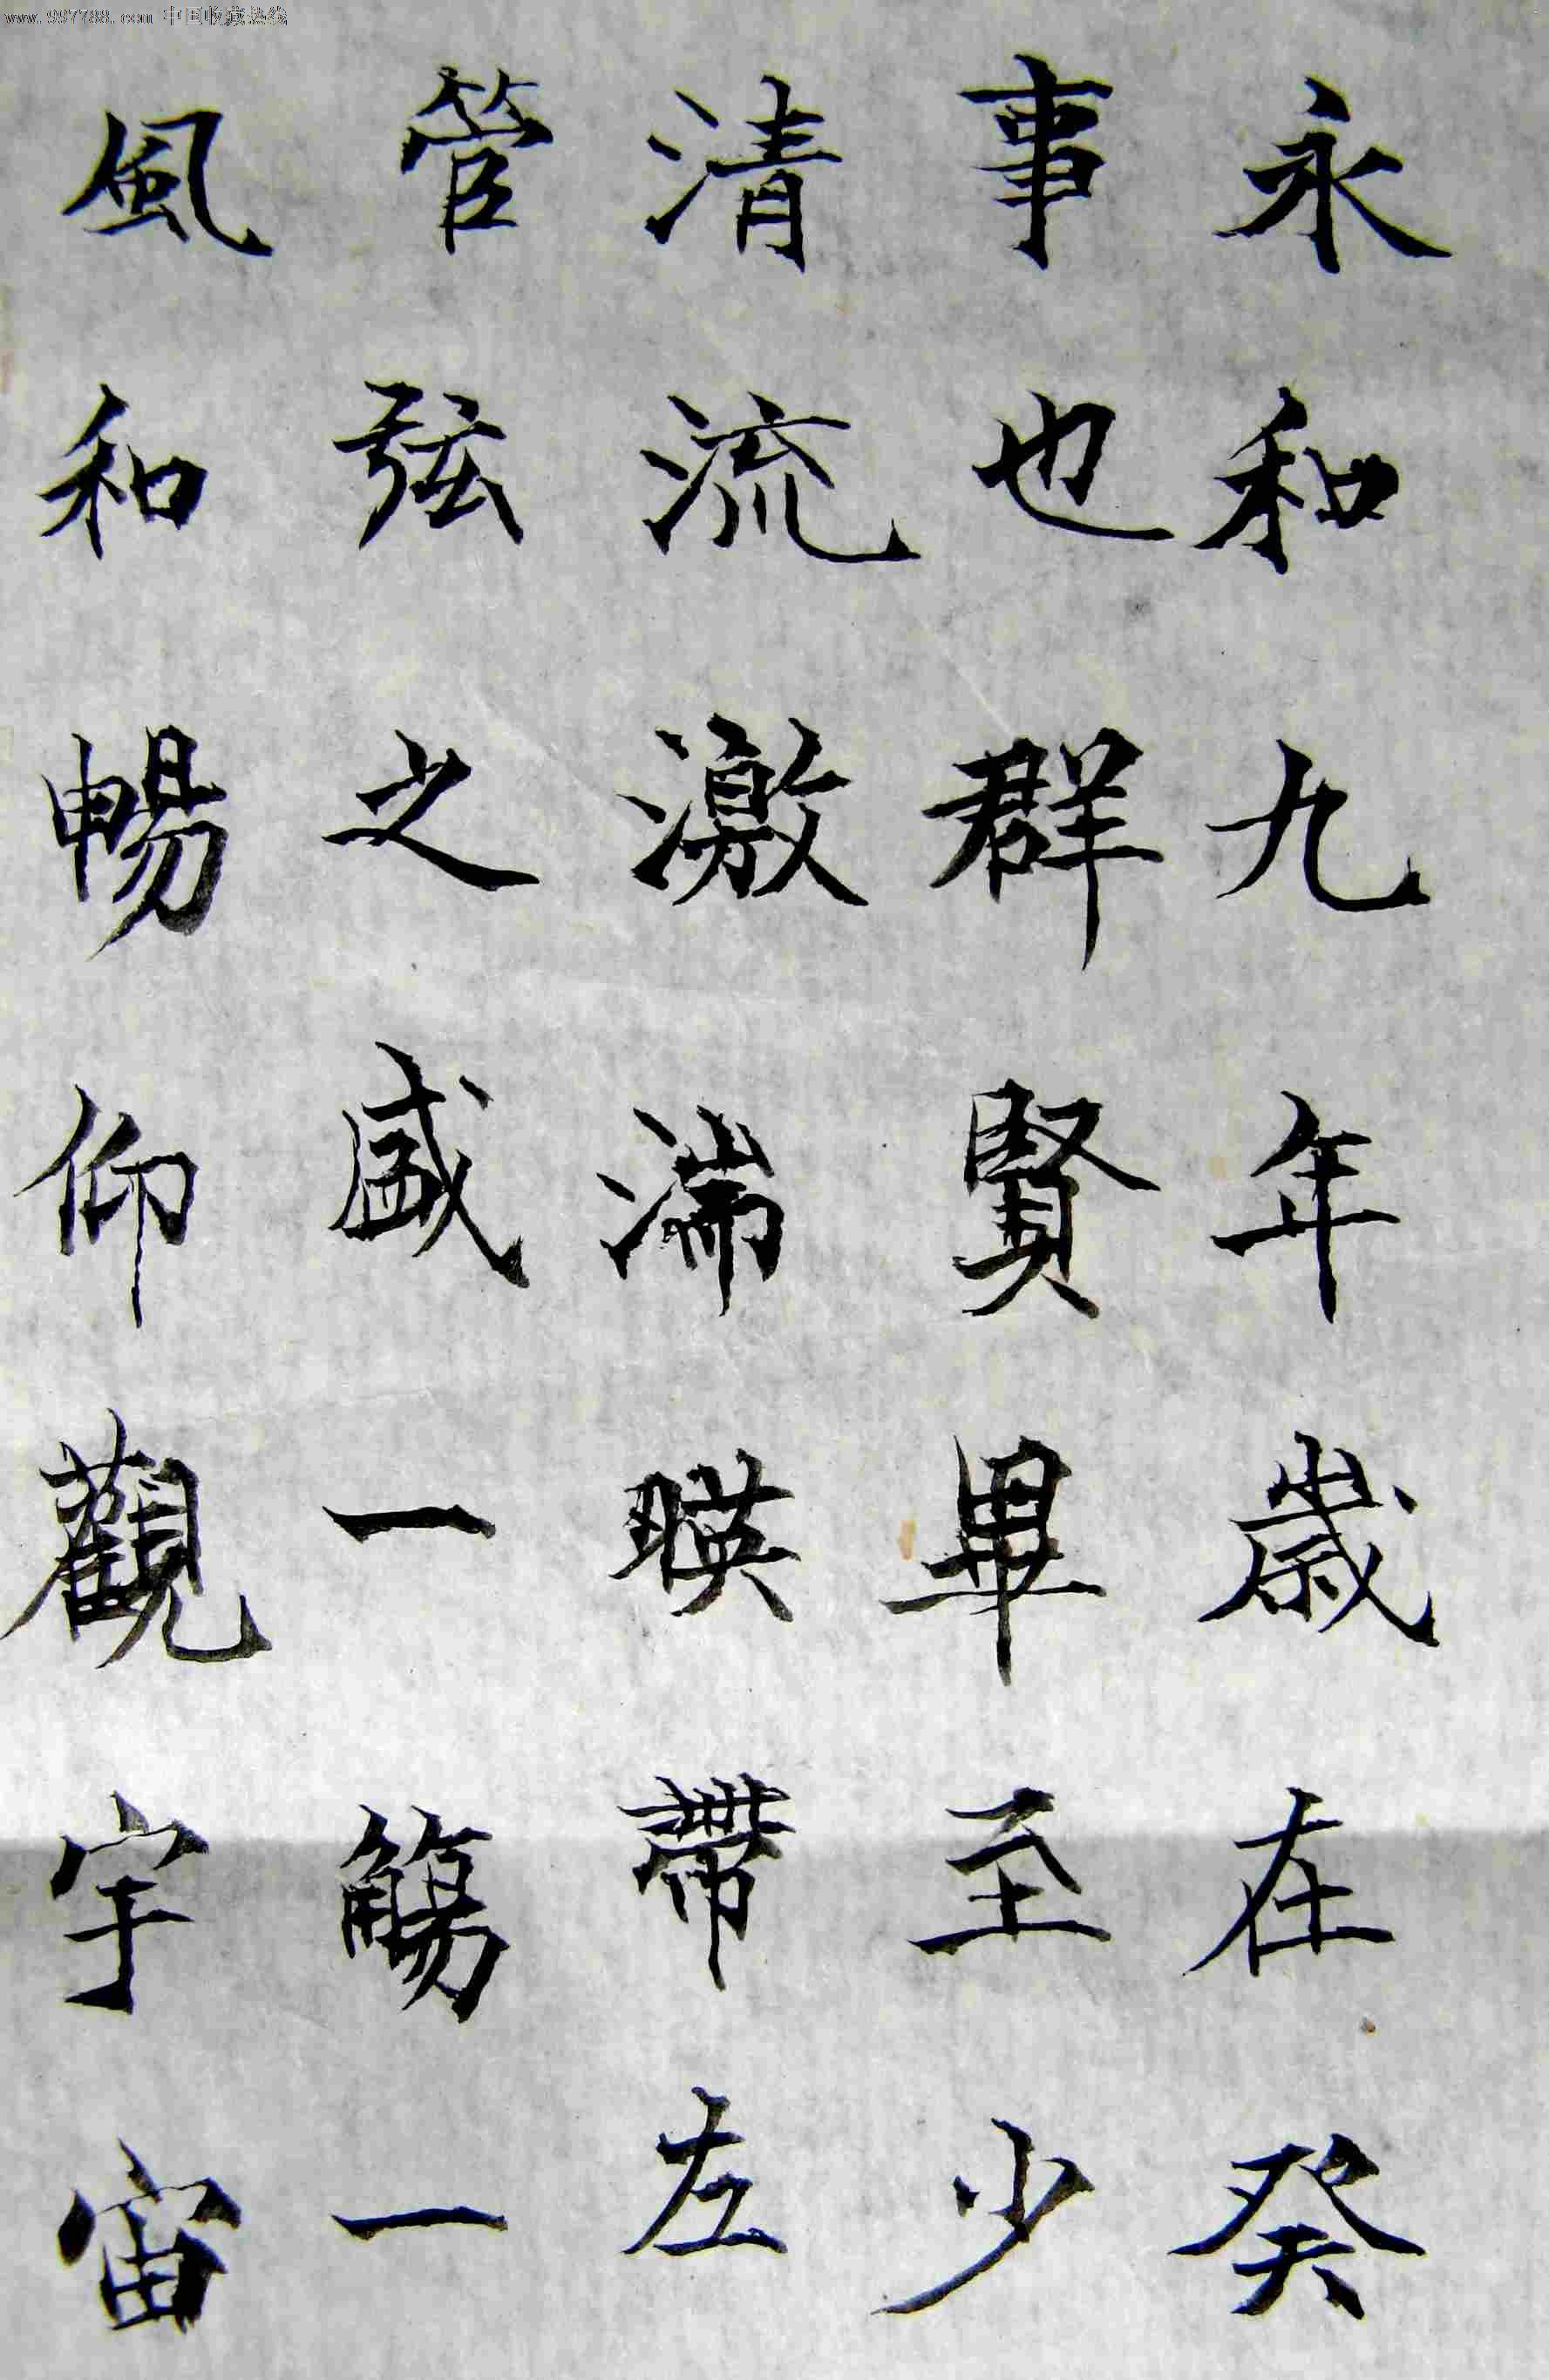 www.997788.com 中国收藏热线
永和九年歲在癸
事也群賢畢至少
清流激湍暎帶左
管弦之盛一觴一
風和暢仰觀宇宙